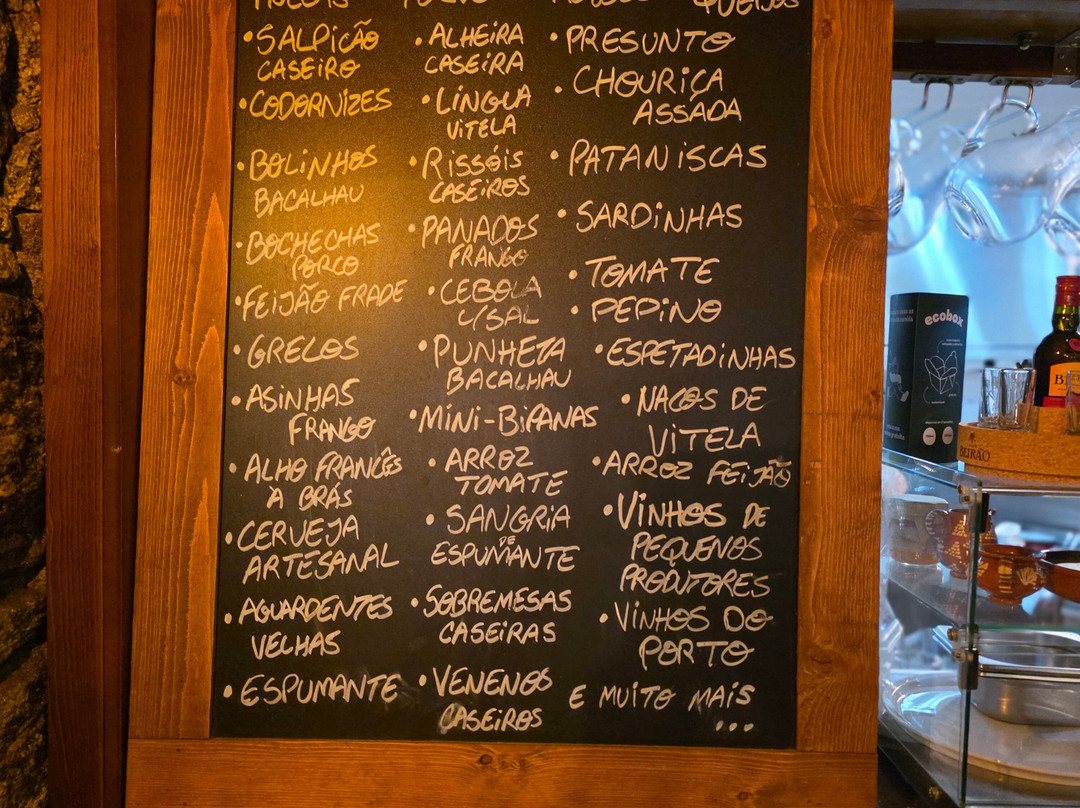 QUEIJOS
• SALPICÃO
CASEIRO
• CODORNIZES
• BOLINHOS
BACALHAU
• BOCHECHAS
PORCO
• FEIJÃO FRADE
• GRELOS
• ASINHAS
FRANGO
• ALHO FRANCÊS
A BRÁS
• CERVEJA
ARTESANAL
• AGUARDENTES
VELHAS
• ESPUMANTE
• ALHEIRA
CASEIRA
• LÍNGUA
VITELA
• RISSÓIS
CASEIROS
• PANADOS
FRANGO
• CEBOLA
C/SAL
• PUNHETA
BACALHAU
• MINI-BIFANAS
• ARROZ
TOMATE
• SANGRIA
DE
ESPUMANTE
• SOBREMESAS
CASEIRAS
• VENENOS
CASEIROS
• PRESUNTO
• CHOURIÇA
ASSADA
• PATANISCAS
• SARDINHAS
• TOMATE
• PEPINO
• ESPETADINHAS
• NACOS DE
VITELA
• ARROZ FEIJÃO
• VINHOS DE
PEQUENOS
PRODUTORES
• VINHOS DO
PORTO
E MUITO MAIS
...
ecobox
BEIRÃO